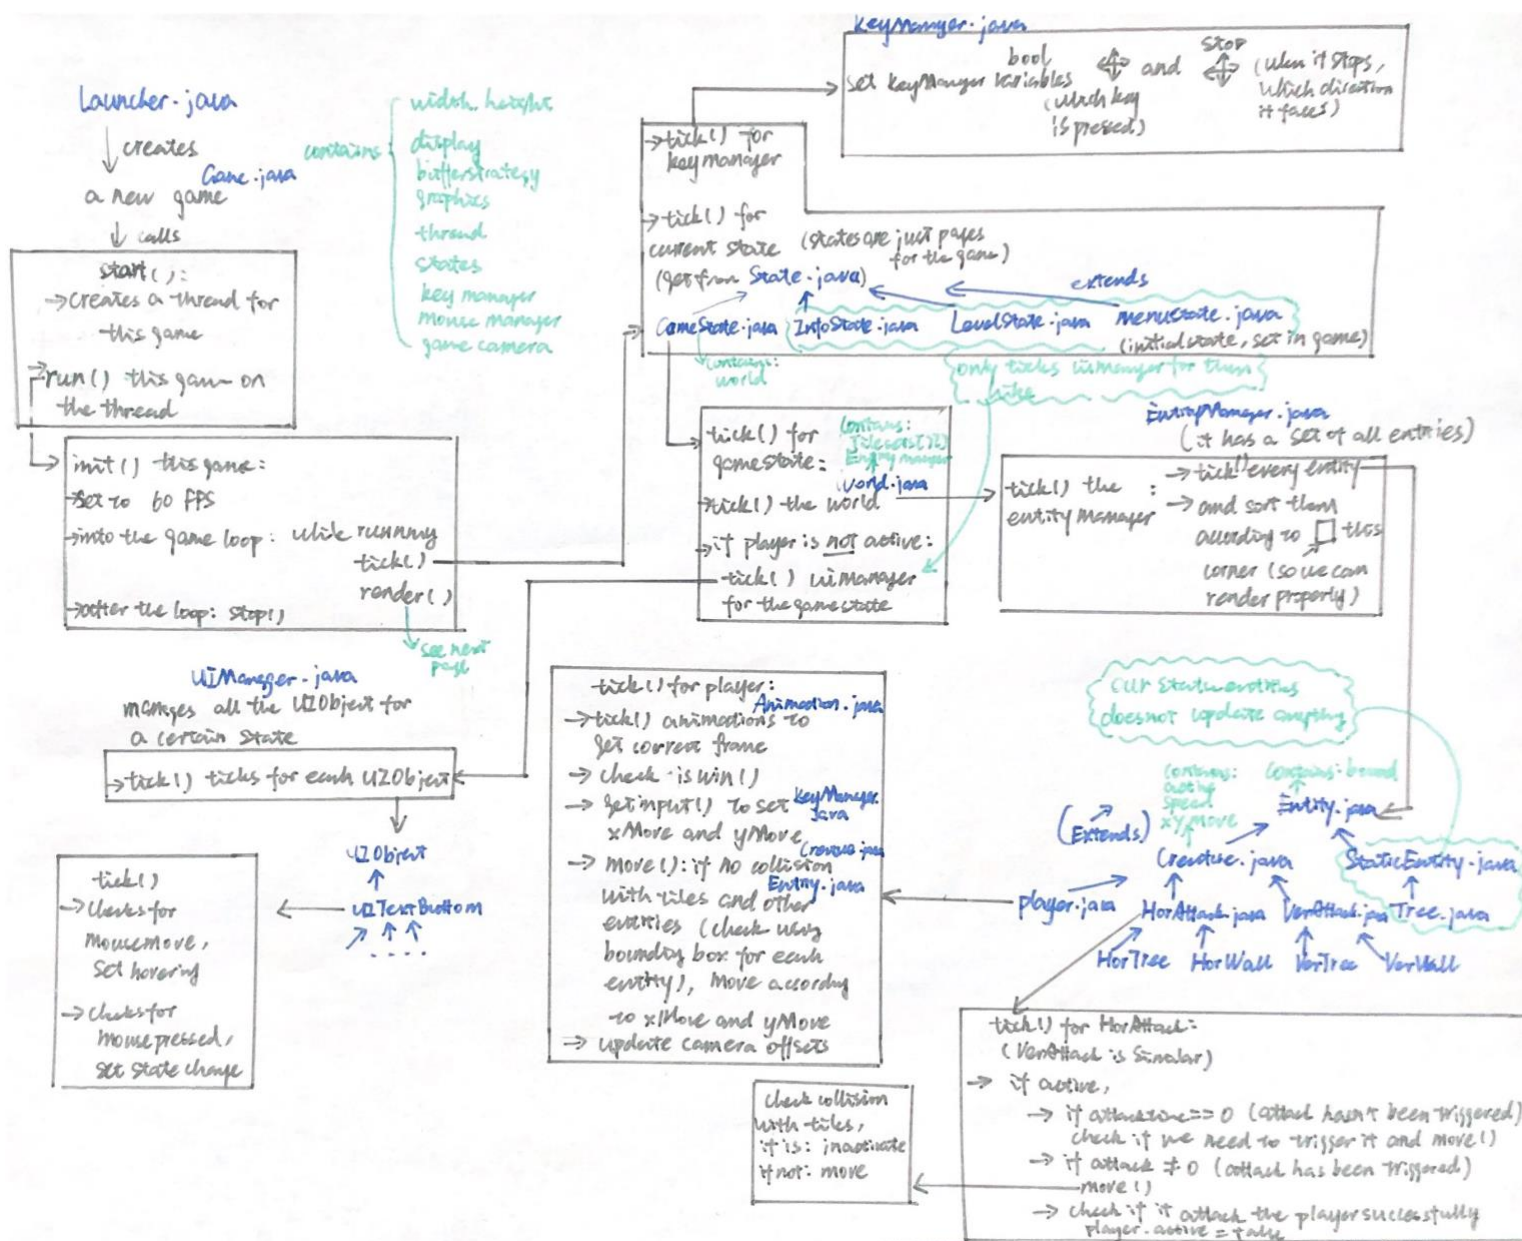 Launcher.java
creates
Game.java
a new game
calls
start():
→ creates a thread for
this game
→ run() this game on
the thread
contains
width, height
display
bufferstrategy
graphics
thread
states
key manager
mouse manager
game camera
KeyManager.java
bool
set keyManager variables
(which key
is pressed)
and
stop
(when it stops,
which direction
it faces)
→ tick() for
key manager
→ tick() for
current state
(get from State.java)
(states are just pages
for the game)
extends
GameState.java
InfoState.java
LevelState.java
menustate.java
(initial state, set in game)
contains:
world
only ticks uimanager for them
init() this game:
→ set to 60 FPS
→ into the game loop: while running
tick()
render()
→ after the loop: stop()
see next
page
tick() for
gamestate:
contains:
Entity manager
World.java
→ tick() the world
→ if player is not active:
tick() uimanager
for the gamestate
EntityManager.java
(it has a set of all entries)
tick() the
entity manager
:
→ tick() every entity
→ and sort them
according to this
corner (so we can
render properly)
UIManager.java
manages all the UIObject for
a certain state
→ tick() ticks for each UIObject
UIObject
UITextButtom
....
tick()
→ checks for
mousemove,
set hovering
→ checks for
mousepressed,
set state change
tick() for player:
Animation.java
→ tick() animations to
get correct frame
→ check iswin()
→ getinput() to set
KeyManager.
java
xMove and yMove
Creature.java
→ move(): if no collision
Entity.java
with tiles and other
entities (check using
bounding box for each
entity), move according
to xMove and yMove
→ update camera offsets
our static entities
doesnot update anything
contains:
active
speed
xy move
contains: bound
Entity.java
(Extends)
Creature.java
StaticEntity.java
player.java
HorAttack.java
VerAttack.java
Tree.java
HorTree
HorWall
VerTree
VerWall
tick() for HorAttack:
(VerAttack is simalar)
→ if active,
→ if attacktime==0 (attack hasn't been triggered)
check if we need to trigger it and move()
→ if attack ≠ 0 (attack has been triggered)
move()
→ check if it attack the player successfully
player.active = false
check collision
with tiles,
if is: inactivate
if not: move